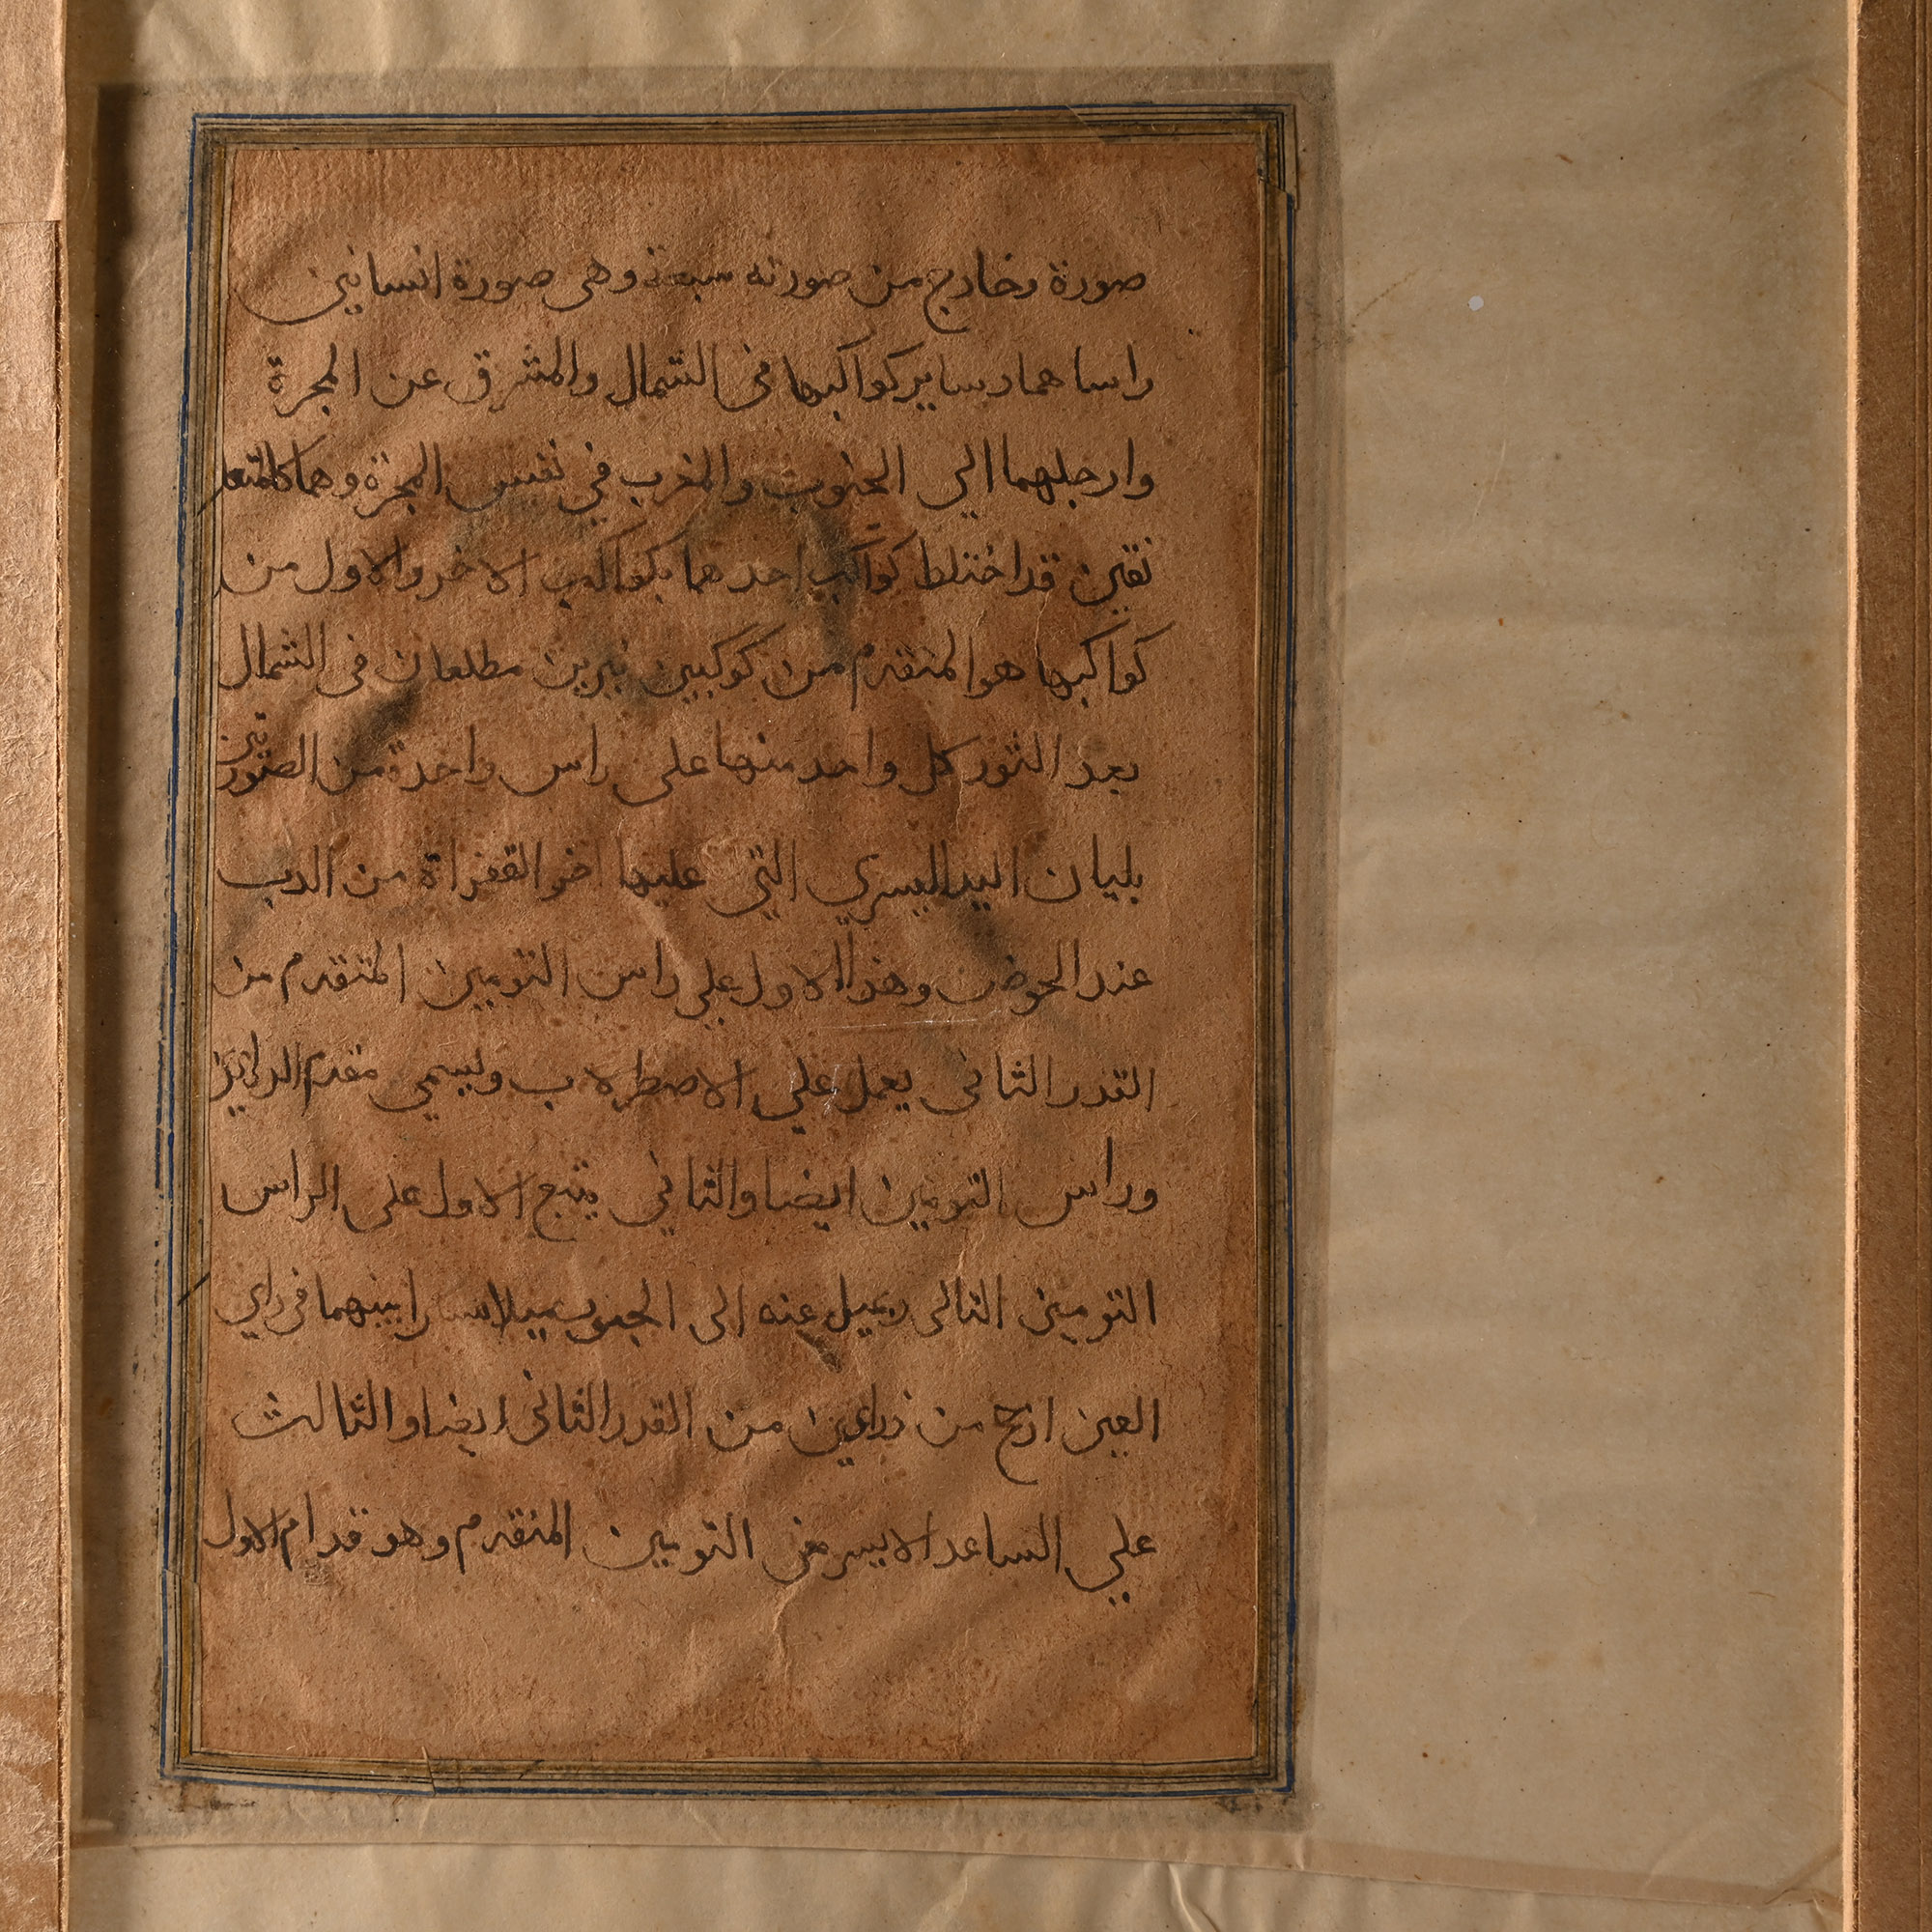 صورة وخارج من صورته سبعة وهى صورة انسانين
راسا هما وساير كواكبها فى الشمال والمشرق عن المجرة
وارجلهما الي الجنوب والمغرب في نفس المجرة وهما كالمتعا
نقين قد اختلط كواكب احدهما بكواكب الاخر والاول من
كواكبها هو المتقدم من كوكبين نيرين مطلعان فى الشمال
بعد الثور كل واحد منها على راس واحدة من الصورتين
يليان اليد اليسري التي عليها اخر القفزاة من الدب
عند الحوض وهذا الاول علي راس التومين المتقدم من
القدر الثانى يعمل علي الاصطرلاب ويسمي مقدم الذراعين
وراس التومين ايضا والثاني يتبع الاول على الراس
التومين التالى ويميل عنه الى الجنوب ميلا بينهما فى راي
العين ارجح من ذراعين من القدر الثانى ايضا والثالث
علي الساعد الايسر من التومين المتقدم وهو قدام الاول